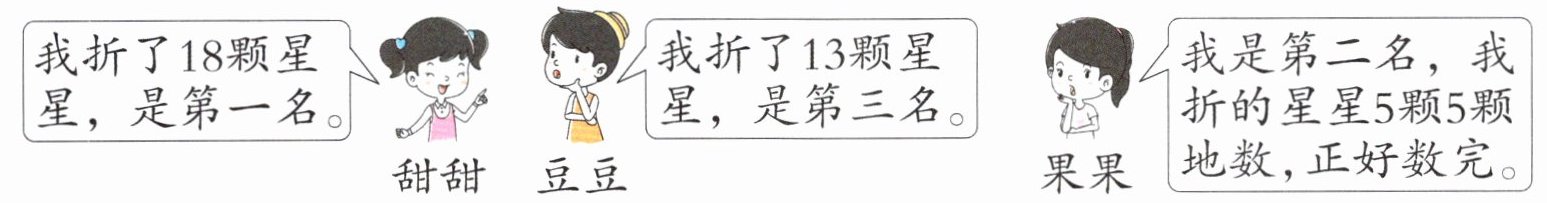 我折了18颗星
星，是第一名。
甜甜
豆豆
我折了13颗星
星，是第三名。
果果
我是第二名，我
折的星星5颗5颗
地数，正好数完。